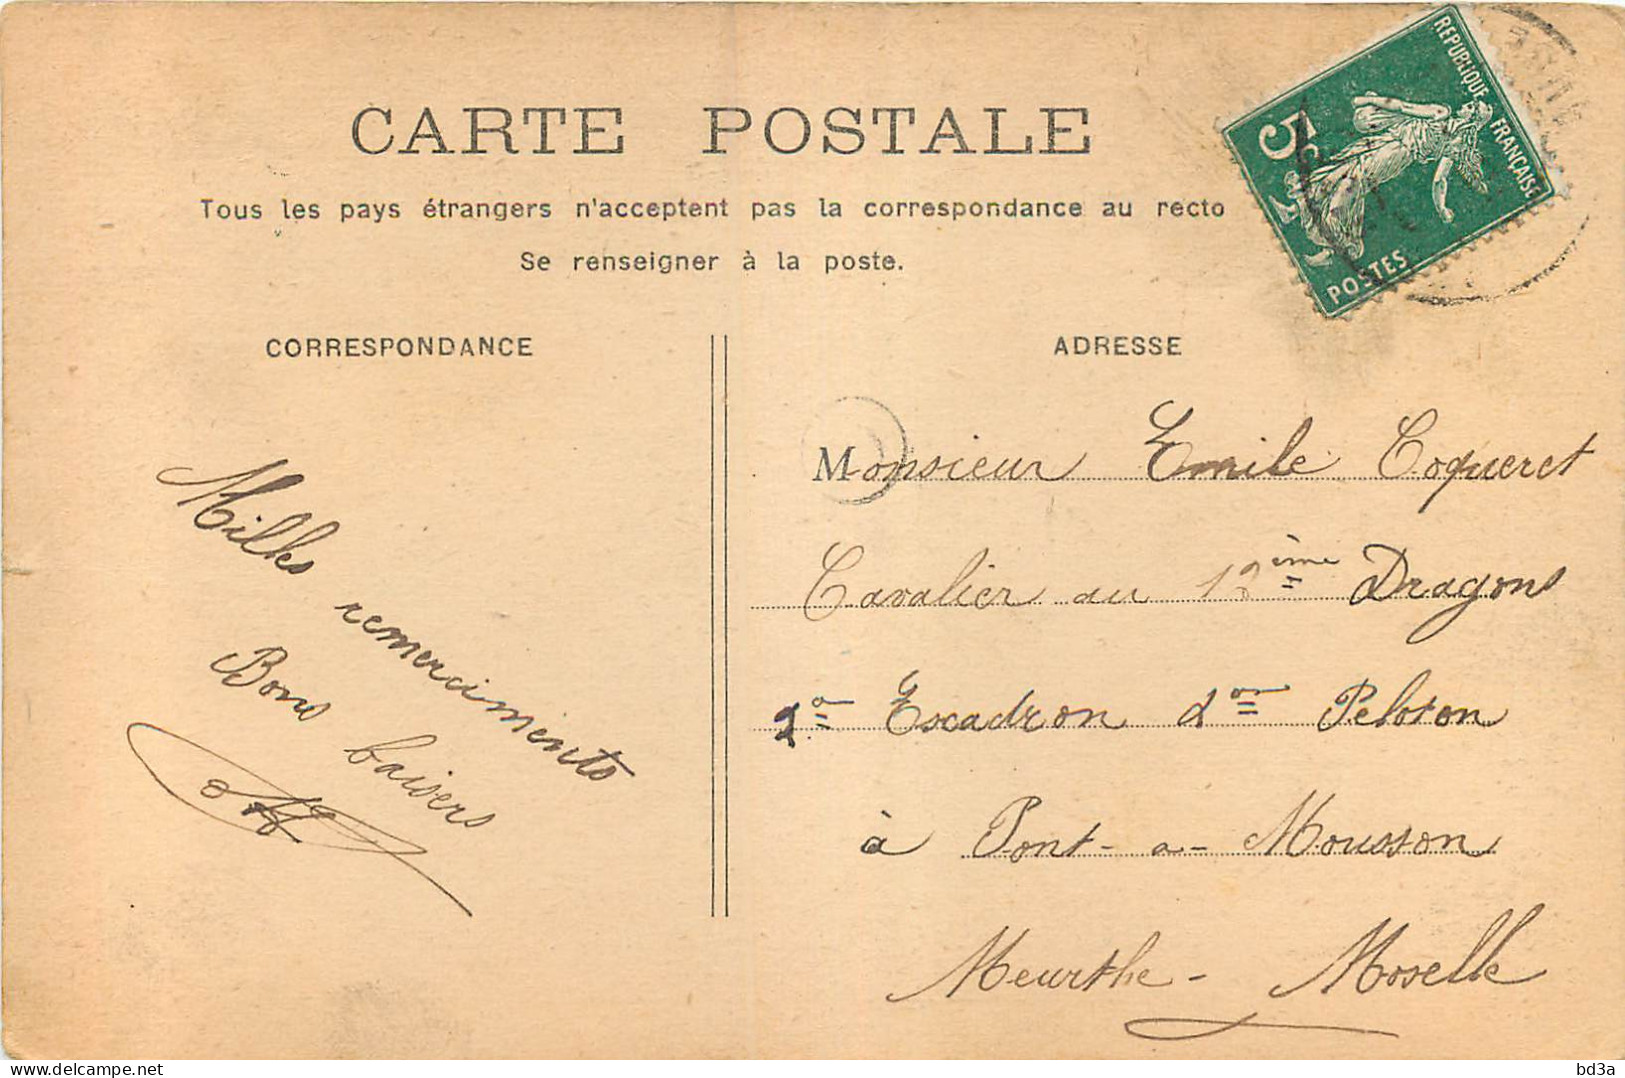 CARTE POSTALE
Tous les pays étrangers n'acceptent pas la correspondance au recto
Se renseigner à la poste.
REPUBLIQUE FRANÇAISE
5c
POSTES
CORRESPONDANCE
Milles
remerciments
Bons baisers
ADRESSE
Monsieur Emile Coqueret
Cavalier au 12ème Dragons
Escadron 2on Peloton
à Pont-a-Mousson
Meurthe-Moselle
bd3a